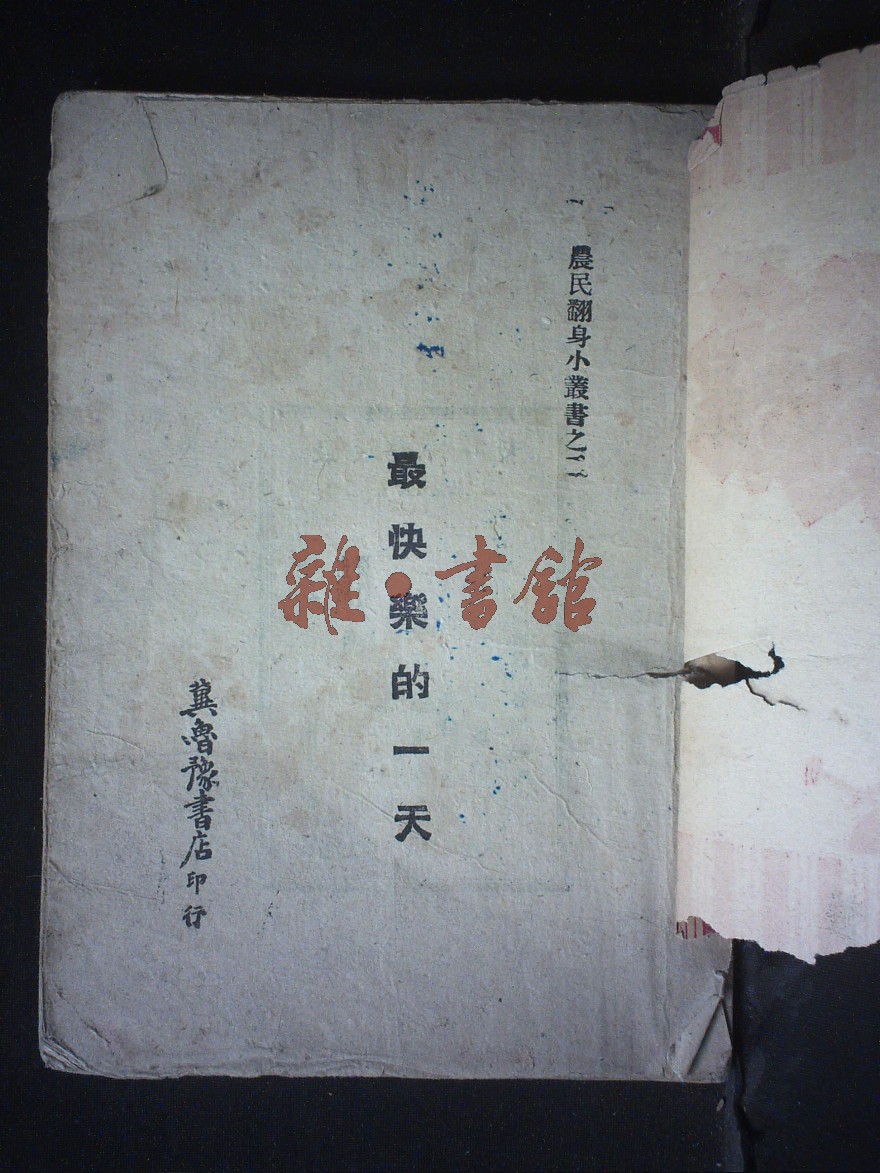 農民翻身小叢書之
最快樂的一天
冀魯豫書店印行
雜·書館